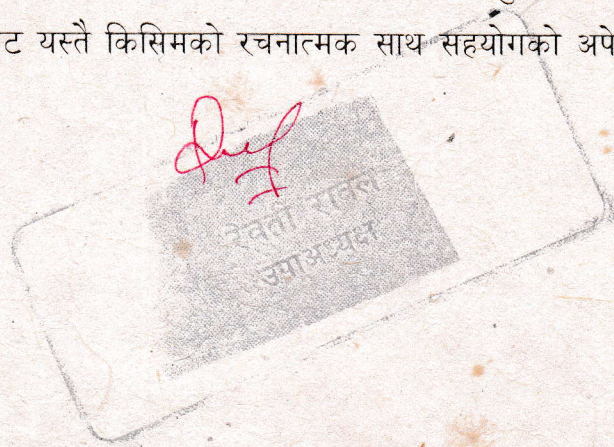 ट यस्तै किसिमको रचनात्मक साथ सहयोगको अपे
रेवती रावल
उपाअध्यक्ष